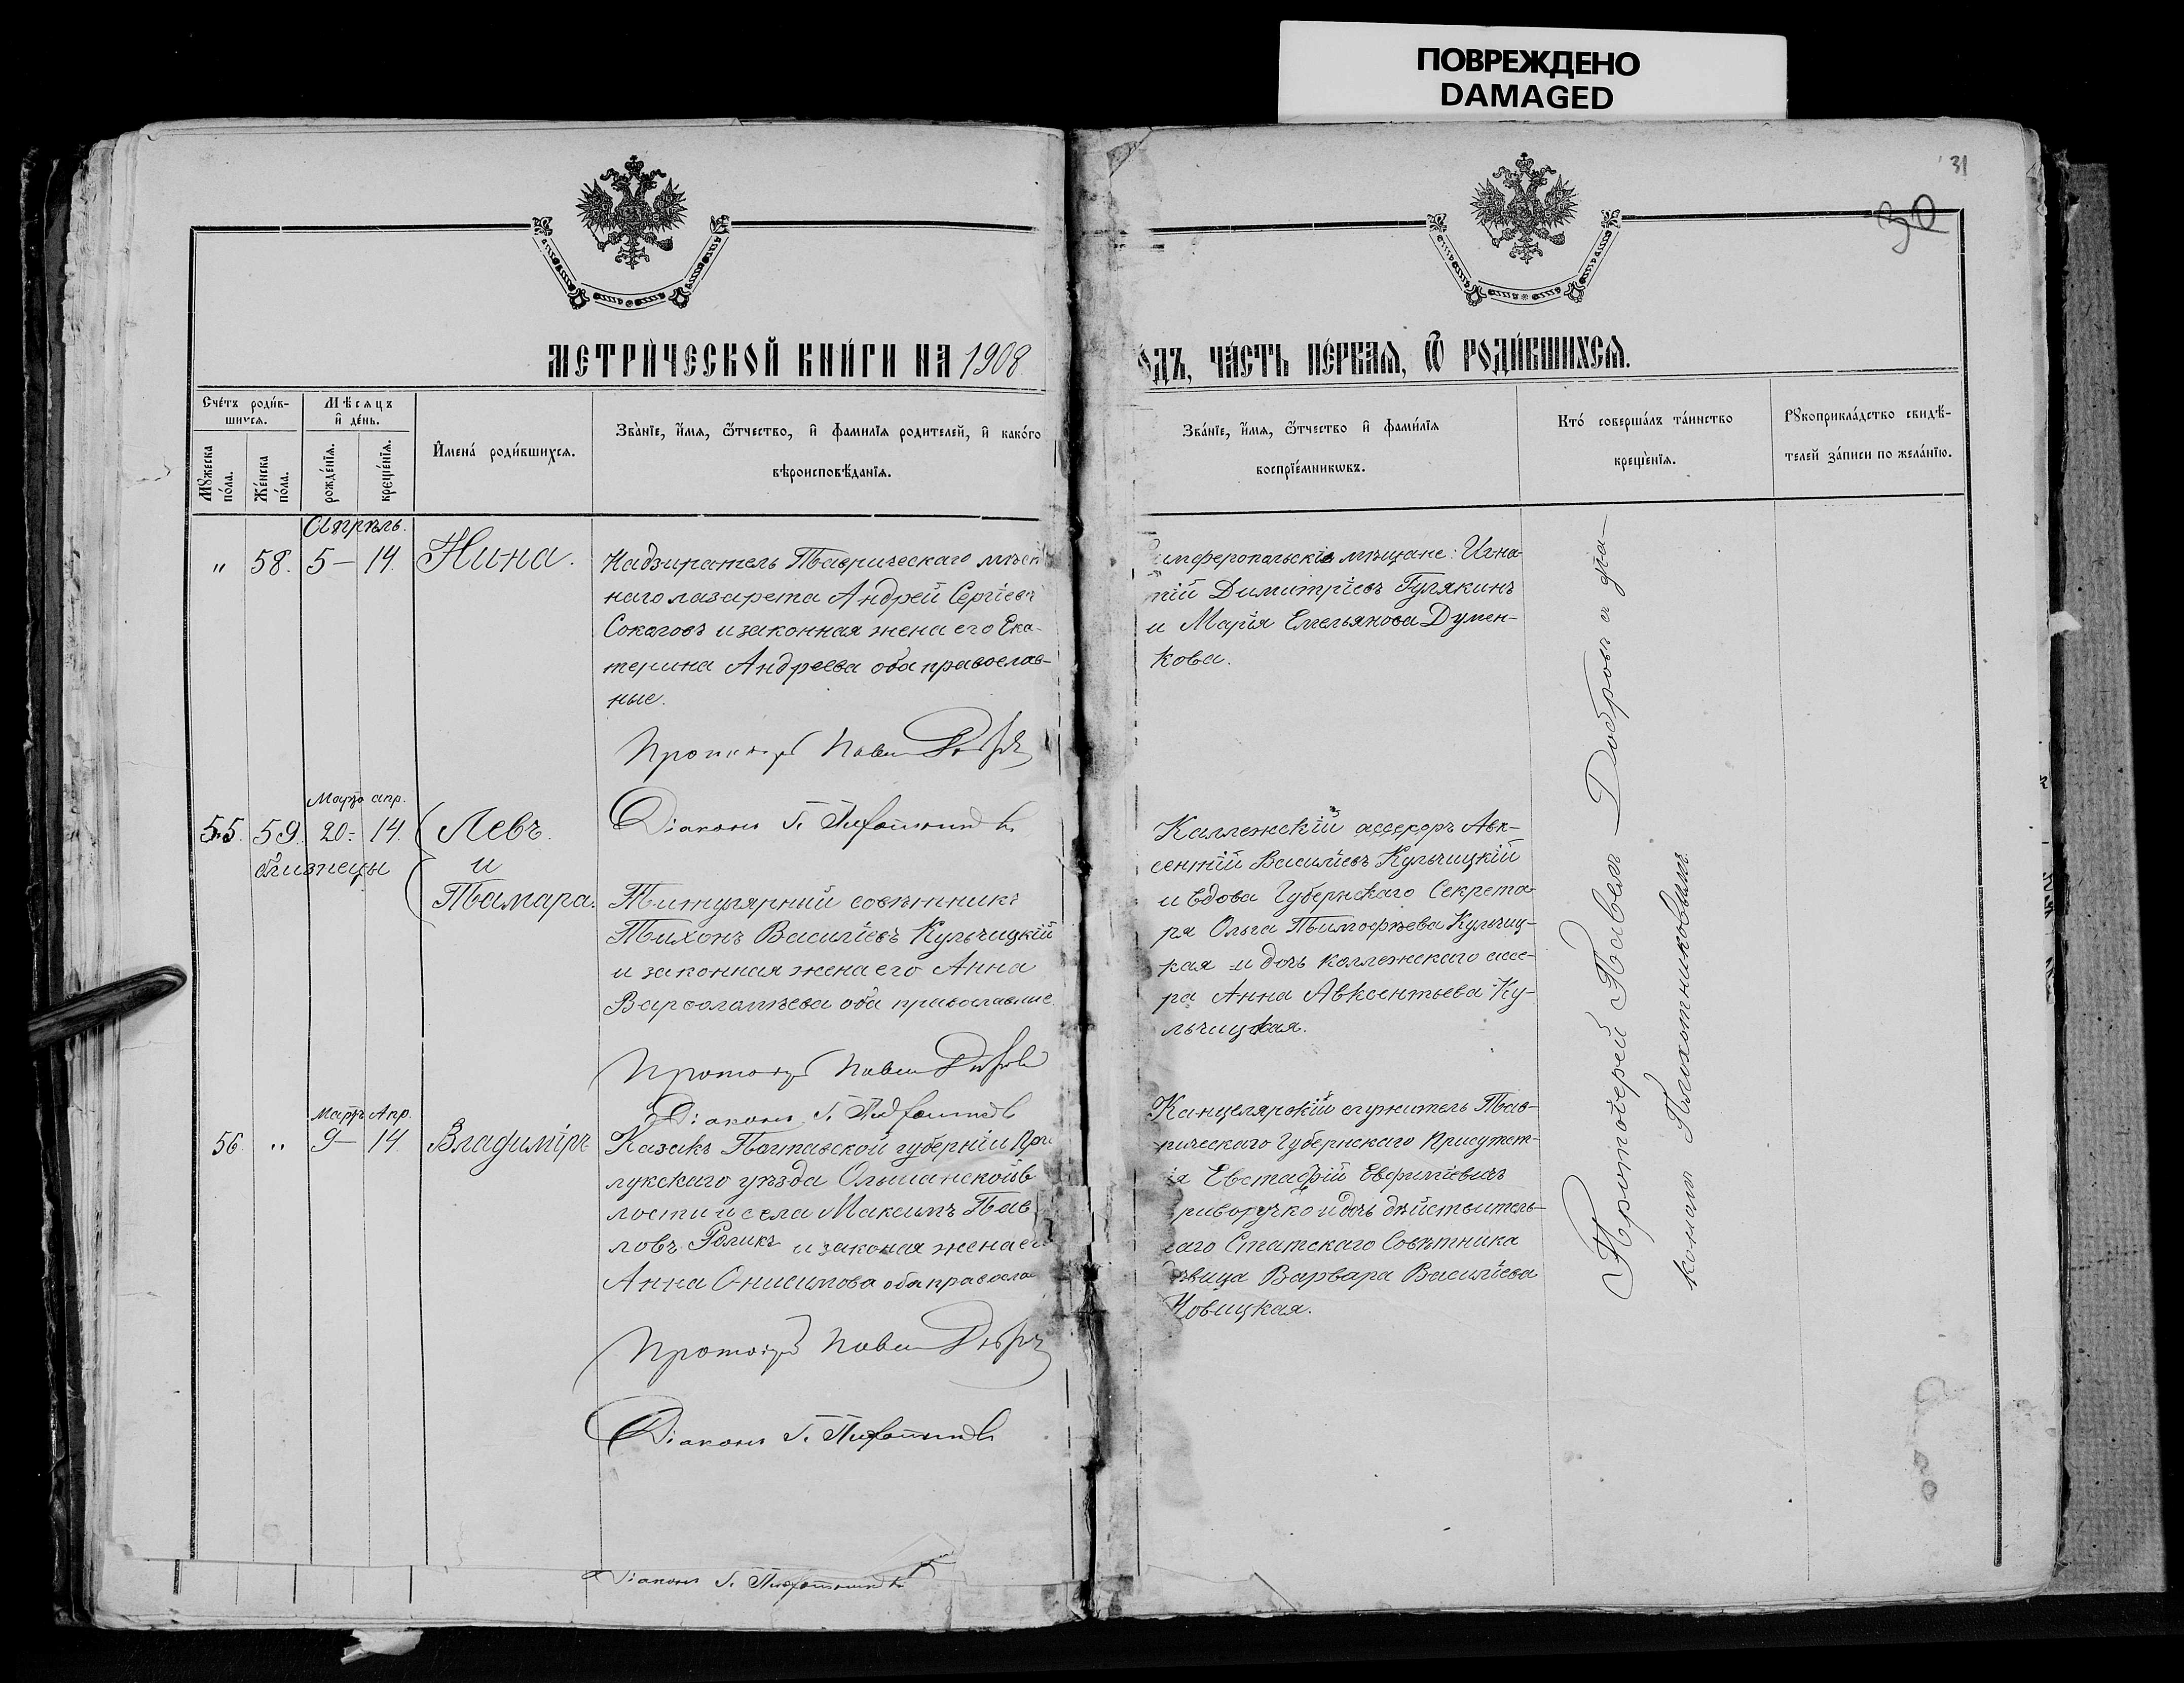 ПОВРЕЖДЕНО
DAMAGED
31
30
МЕТРИ́ЧЕСКОЙ КНИ́ГИ НА 1908
ОДЪ, ЧА́СТЬ ПЕ́РВАѦ, Ѽ РОДИ́ВШИХСѦ.
Сче́тъ роди́в-
шихсѧ.
Мꙋжеска по́ла.
Же́нска по́ла.
Мѣсѧцъ
и҆ де́нь.
рожде́нїѧ.
креще́нїѧ.
И҆мена́ роди́вшихсѧ.
Зва́нїе, и҆́мѧ, ѻ҆́тчество, и҆ фами́лїѧ роди́телей, и҆ како́гѡ
вѣроисповѣ́данїѧ.
Зва́нїе, и҆́мѧ, ѻ҆́тчество и҆ фами́лїѧ
воспрїе́мникѡвъ.
Кто́ соверша́лъ та́инство
креще́нїѧ.
Рꙋкоприкла́дство свидѣ́-
телей за́писи по жела́нїю.
Апрѣль.
" 58. 5 – 14. Нина.
Надзиратель Таврическаго мѣст
наго лазарета Андрей Сергіевъ
Соколовъ и законная жена его Ека-
терина Андреева оба православ-
ные.
Протоіер Павел Добров
Діаконъ Г. Плохотников
имферопольскіе мѣщане: Игна-
тій Димитріевъ Гулякинъ
и Марія Емельянова Думен-
кова.
Мартъ апр.
55. 59. 20 – 14. Левъ
близнецы и
Тамара.
Титулярный совѣтникъ
Тихонъ Василіевъ Кульчицкій
и законная жена его Анна
Варфоломѣева оба православные
Протоіер Павел Добров
Діаконъ Г. Плохотников
Коллежскій ассесоръ Авк-
сентій Василіевъ Кульчицкій
и вдова Губернскаго Секрета-
ря Ольга Тимофѣева Кульчиц-
кая и дочь коллежскаго ассе-
ра Анна Авксентьева Ку-
льчицкая.
Мартъ Апр.
56 " 9 – 14. Владиміръ
Казакъ Полтавской губерніи При
лукскаго уѣзда Ольшанской в
лости и села Максимъ Пав
ловъ Роликъ и законая жена ег
Анна Онисимова оба правосла
Протоіер Павел Добров
Діаконъ Г. Плохотников
Канцелярскій служитель Тав-
рическаго Губернскаго Присутст-
ія Евстафій Евфиміевичъ
риворучко и дочь дѣйствитель-
наго Статскаго Совѣтника
дѣвица Варвара Василіева
Новицкая.
Протоіерей Павелъ Добровъ а діа-
кономъ Плохотниковымъ
Діаконъ Г. Плохотников